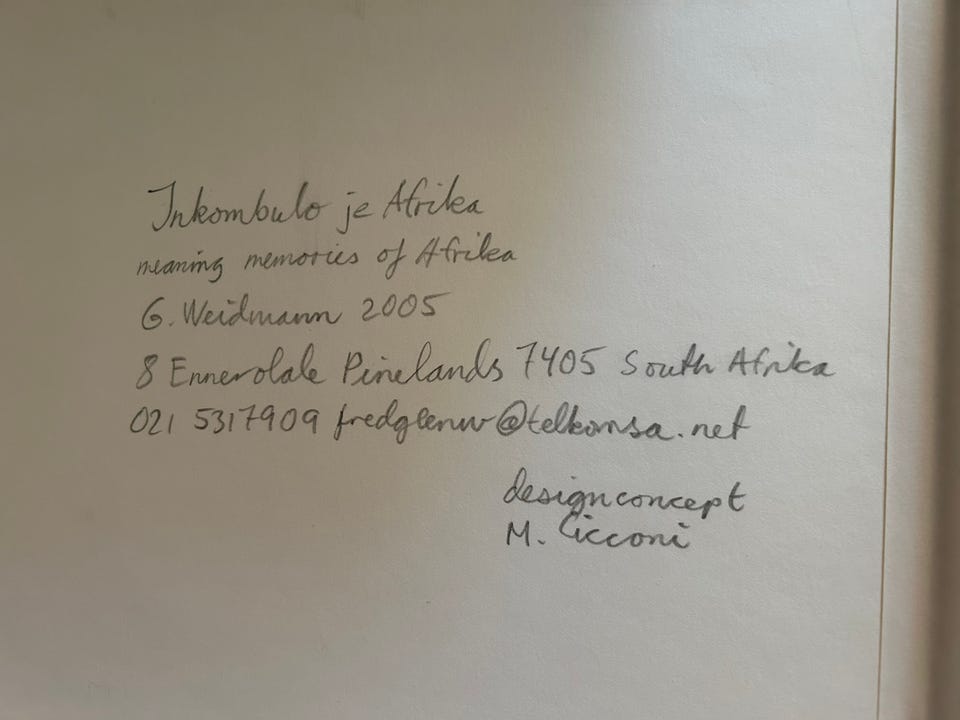 Inkombulo je Afrika
meaning memories of Afrika
G. Weidmann 2005
8 Ennerdale Pinelands 7405 South Afrika
021 5317909 fredglenw@telkomsa.net
designconcept
M. Cicconi